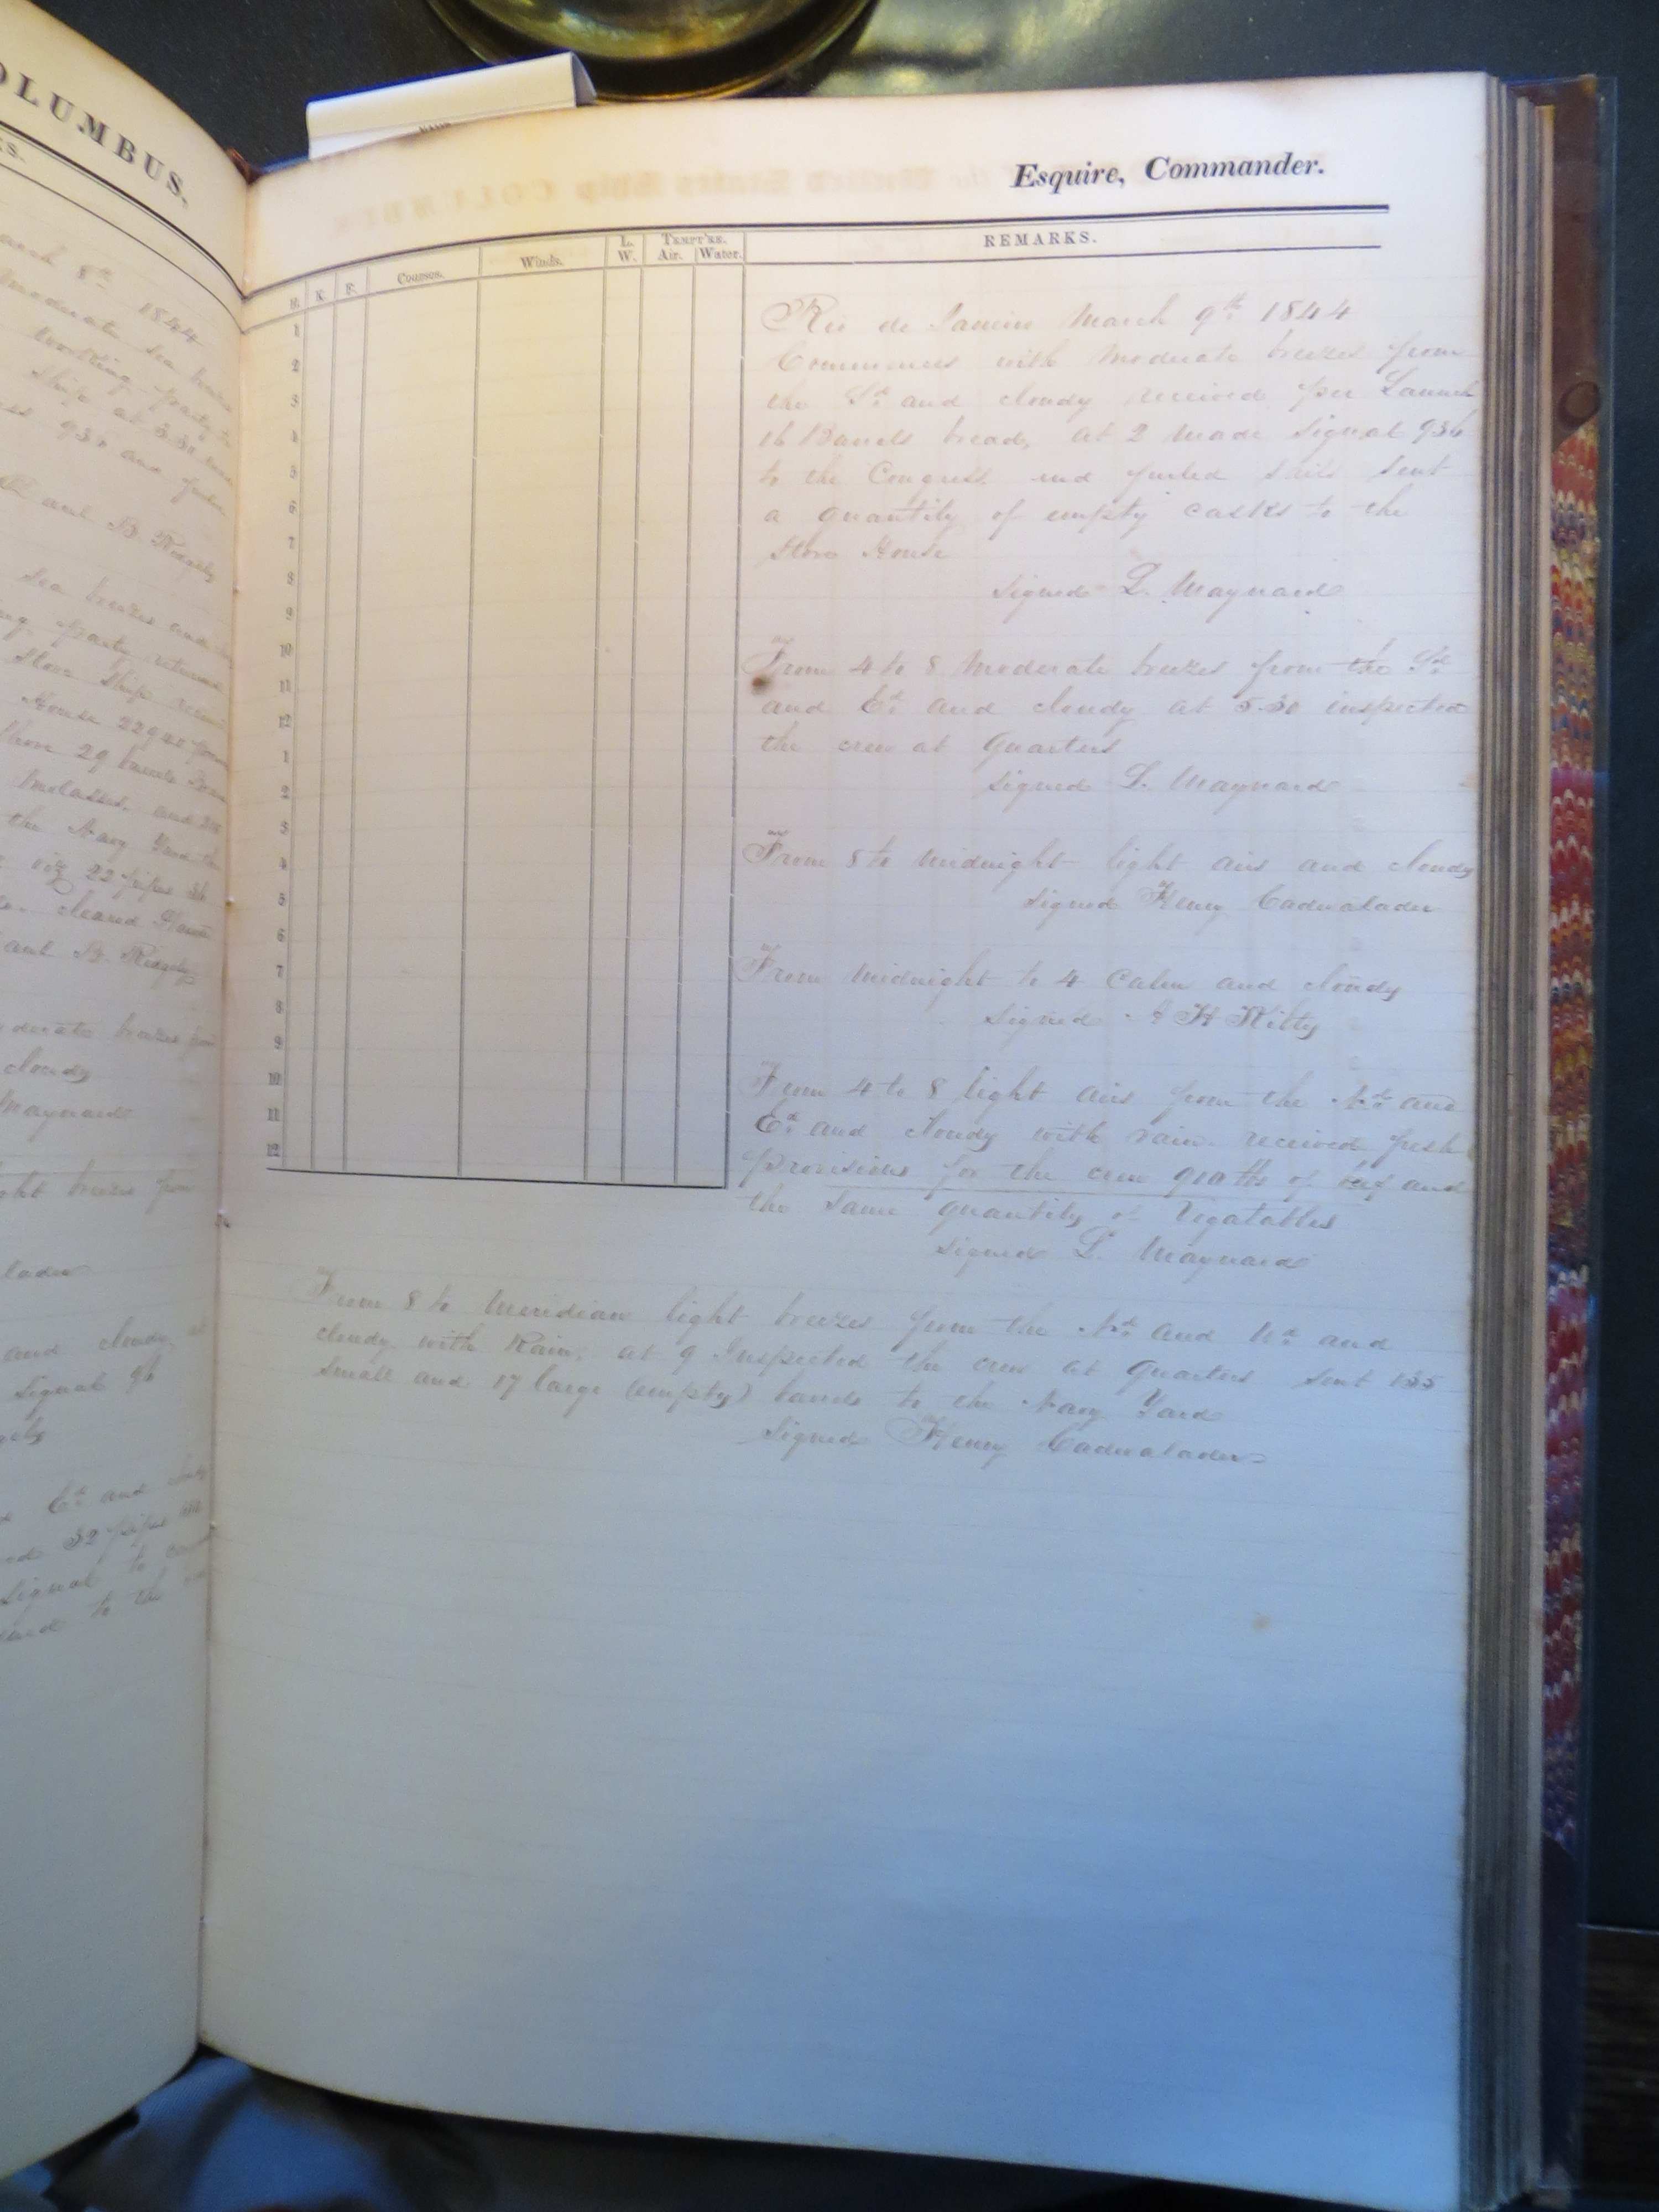 OLUMBUS.
KS.
arch 8th 1844
Moderate sea breeze
working party
ship at 3.30
ess 936 and furled
and B Ridgely
sea breezes and
ing party returned
Store Ship
House 22 gal
29 barrels
Molasses, and
the Navy Yard
viz 22 pipes 36
cleared
B. Ridgely
derate breezes from
cloudy
Maynard
ght breezes from
lader
and cloudy, at
signal 96
gely
Ed and cloudy
32 pipes
signal to
to the
Esquire, Commander.
H. K. F. Courses. Winds. L. W. TEMPT'RE. Air. Water. REMARKS.
1
2
3
4
5
6
7
8
9
10
11
12
1
2
3
4
5
6
7
8
9
10
11
12
Rio de Janeiro March 9th 1844
Commences with Moderate breezes from
the Sd and cloudy received per Launch
16 Barrels bread, at 2 made Signal 936
to the Congress and furled sails sent
a quantity of empty casks to the
Store House
Signed L. Maynard
From 4 to 8 Moderate breezes from the Sd
and Ed and cloudy at 5.30 inspected
the crew at Quarters
Signed L. Maynard
From 8 to Midnight light airs and cloudy
Signed Henry Cadwalader
From Midnight to 4 Calm and cloudy
Signed A H Kilty
From 4 to 8 light airs from the Nd and
Ed and cloudy with rain. received fresh
provisions for the crew 910 lbs of beef and
the same quantity of Vegatables
Signed L. Maynard
From 8 to Meridian light breezes from the Nd and Wd and
cloudy with Rain, at 9 Inspected the crew at Quarters sent 135
small and 17 large (empty) barrels to the Navy Yard
Signed Henry Cadwalader